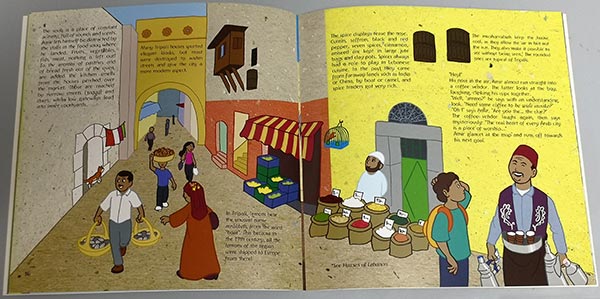 The souk is a place of constant
activity, full of sounds and scents.
Amir lets himself be distracted by
the stalls in the food souk where
he landed. Fruits, vegetables,
fish, meat, nothing is left out!
To the aromas of pastries and
of bread fresh out of the oven
are added the kitchen smells
from the houses perched over
the market. Other are reached
by narrow streets
shady courtyards.
Many Tripoli houses sported
elegant facades, but most
were destroyed to widen
streets and give the city a
more modern aspect.
In Tripoli, lemons bear
the unusual name
from the word
"boat". This because in
the 19th century, all the
lemons of the region
were shipped to Europe
from there!
The spice displays tease the nose.
Cumin, saffron, black and red
pepper, seven spices, cinnamon,
aniseed are kept in large jute
bags and clay pots. Spices always
had a role to play in Lebanese
cuisine. In the past, they came
from faraway lands such as India
or China, by boat or camel, and
spice traders got very rich.
The moucharabieh keep the house
cool, as they allow the air in but not
the sun. They also make it possible to
see without being seen. The rounded
ones are typical of Tripoli.
"Hey!"
His nose in the air, Amir almost ran straight into
a coffee vendor. The latter looks at the boy,
laughing, clicking his cups together.
"Well, "ammo!" he says with an understanding
look, "Need some coffee to be wide awake?"
"Oh!" says Amir, "Are you the
The coffee-vendor laughs again, then says
mysteriously: "The real heart of every Arab city
is a place of worship..."
Amir glances at the map and runs off towards
his next goal.
*See Houses of Lebanon